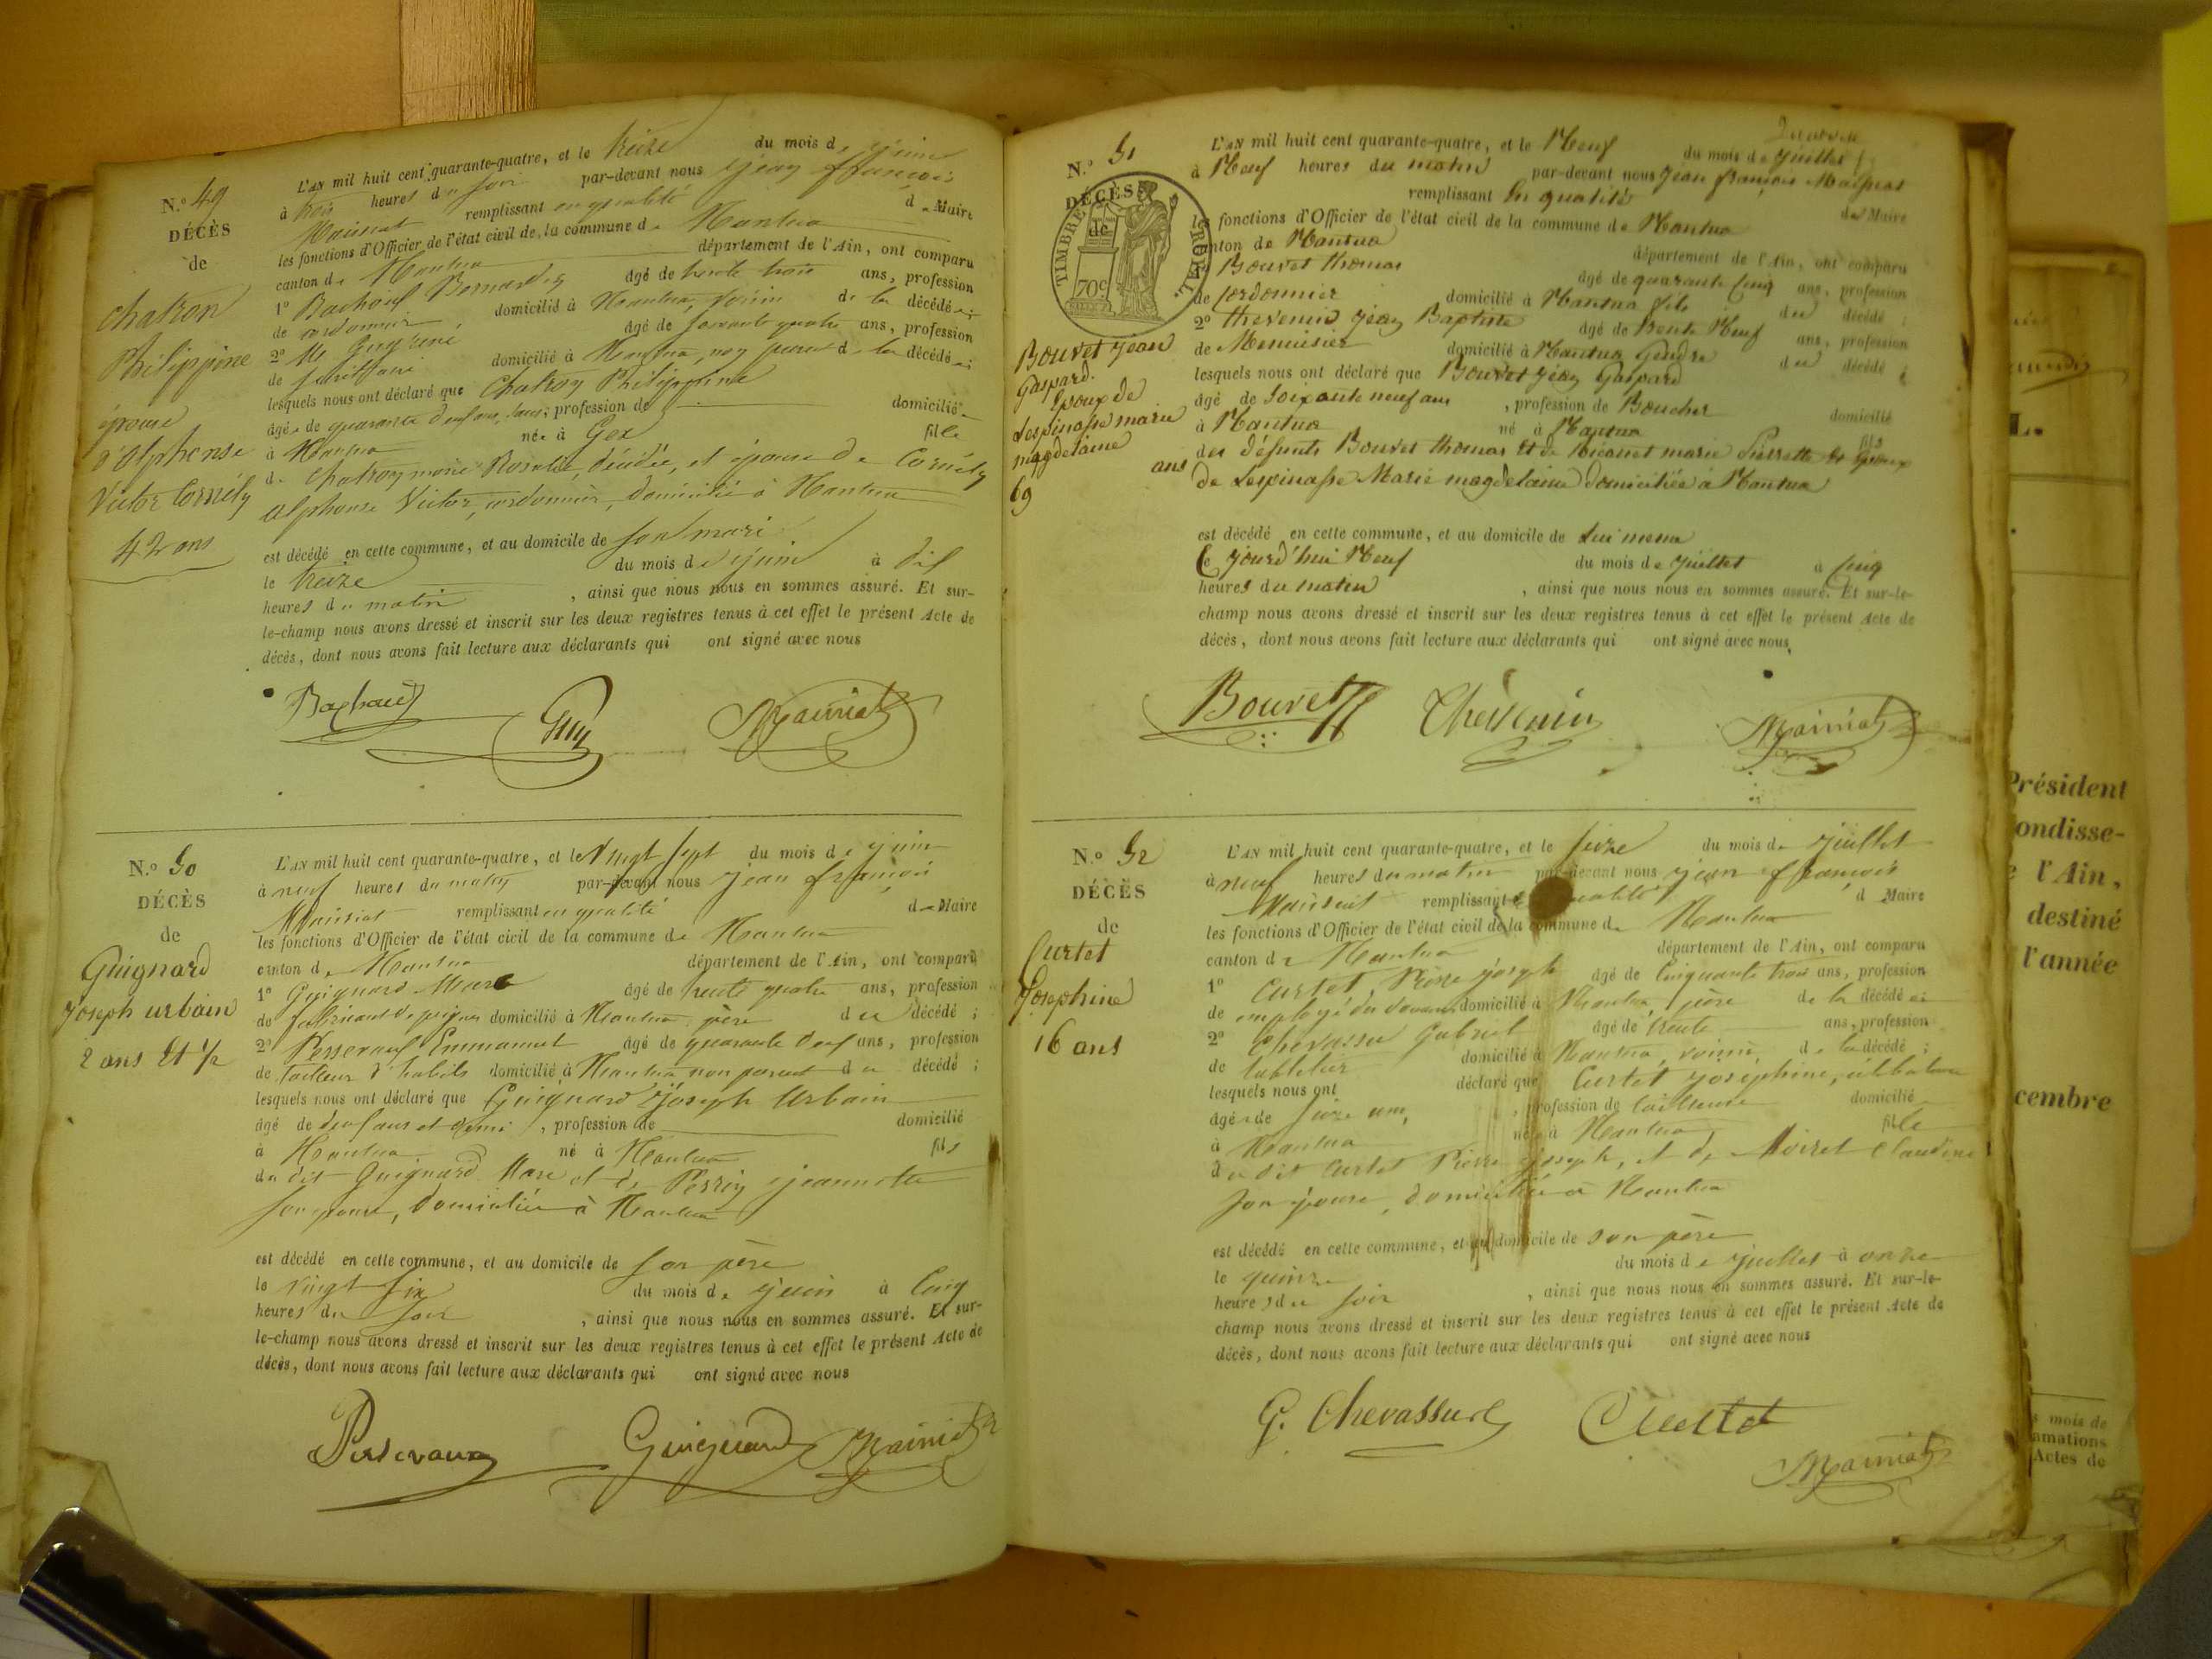 N.° 49
DÉCÈS
de
Chatron
Philippine
épouse
d'alphonse
Victor Cornély
42 ans
L'AN mil huit cent quarante-quatre, et le treize du mois de juin
à trois heures du soir par-devant nous jean françois
Mainiat remplissant en qualité de Maire
les fonctions d'Officier de l'état civil de la commune de Nantua
canton de Nantua département de l'Ain, ont comparu
1° Bachoud Bernard agé de trente trois ans, profession
de cordonnier, domicilié à Nantua, voisin de la décédée;
2° Guy agé de soixante quatre ans, profession
de domicilié à Nantua, non parent de la décédée;
lesquels nous ont déclaré que Chatron Philippine
âgée de quarante deux ans, , profession de domiciliée
à Nantua née à Gex fille
de Chatron marie Rosalie, décédée, et épouse de Cornély
alphonse Victor, cordonnier, domicilié à Nantua
est décédé en cette commune, et au domicile de son mari
le treize du mois de juin à dix
heures du matin , ainsi que nous nous en sommes assuré. Et sur-
le-champ nous avons dressé et inscrit sur les deux registres tenus à cet effet le présent Acte de
décès, dont nous avons fait lecture aux déclarants qui ont signé avec nous
Guy Mainiat
N.° 50
DÉCÈS
de
Guignard
Joseph urbain
2 ans Et 1/2
L'AN mil huit cent quarante-quatre, et le Vingt sept du mois de juin
à neuf heures du matin par-devant nous jean françois
Mainiat remplissant en qualité de Maire
les fonctions d'Officier de l'état civil de la commune de Nantua
canton de Nantua département de l'Ain, ont comparu
1° Guignard Marc agé de trente quatre ans, profession
de fabricant de peignes domicilié à Nantua père du décédé;
2° Perseraux Emmanuel agé de quarante deux ans, profession
de tailleur d'habits domicilié à Nantua non parent du décédé;
lesquels nous ont déclaré que Guignard Joseph Urbain
âgé de deux ans et demi, profession de domicilié
à Nantua né à Nantua fils
du dit Guignard Marc et de Perrin jeannette
son épouse, domiciliée à Nantua
est décédé en cette commune, et au domicile de son père
le vingt six du mois de juin à Cinq
heures du soir , ainsi que nous nous en sommes assuré. Et sur-
le-champ nous avons dressé et inscrit sur les deux registres tenus à cet effet le présent Acte de
décès, dont nous avons fait lecture aux déclarants qui ont signé avec nous
Perseraux Guignard Mainiat
N.° 51
DÉCÈS
de
TIMBRE ROYAL.
70c
Bouvet Jean
Gaspard.
Epoux de
Lespinasse marie
magdelaine
ans
69
L'AN mil huit cent quarante-quatre, et le Neuf du mois de juillet
à Neuf heures du matin par-devant nous jean françois Mainiat
remplissant En qualité de Maire
les fonctions d'Officier de l'état civil de la commune de Nantua
canton de Nantua département de l'Ain, ont comparu
Bouvet thomas âgé de quarante Cinq ans, profession
de Cordonnier domicilié à Nantua fils du décédé;
2° thevenin Jean Baptiste âgé de trente Neuf ans, profession
de Menuisier domicilié à Nantua Gendre du décédé;
lesquels nous ont déclaré que Bouvet Jean Gaspard
âgé de Soixante neuf ans, profession de Boucher domicilié
à Nantua né à Nantua fils
des défunts Bouvet thomas Et de marie Pierrette Et Epoux
de Lespinasse Marie magdelaine domiciliée à Nantua
est décédé en cette commune, et au domicile de Lui meme
Ce jourd'hui Neuf du mois de juillet à Cinq
heures du matin , ainsi que nous nous en sommes assuré. Et sur-le-
champ nous avons dressé et inscrit sur les deux registres tenus à cet effet le présent Acte de
décès, dont nous avons fait lecture aux déclarants qui ont signé avec nous,
Bouvet Thévenin Mainiat
N.° 52
DÉCÈS
de
Curtet
Josephine
16 ans
L'AN mil huit cent quarante-quatre, et le seize du mois de juillet
à neuf heures du matin par-devant nous jean françois
Mainiat remplissant en qualité d Maire
les fonctions d'Officier de l'état civil de la commune de Nantua
canton de Nantua département de l'Ain, ont comparu
1° Curtet, Pierre joseph âgé de Cinquante trois ans, profession
de employé des douanes, domicilié à Nantua, père de la décédée
2° Chevassu Gabriel âgé de trente ans, profession
de tabletier domicilié à Nantua, voisin, de la décédé;
lesquels nous ont déclaré que Curtet josephine, célibataire
âgée de seize ans, profession de tailleuse domiciliée
à Nantua née à Nantua, fille
du dit Curtet Pierre joseph, et de Moiret Claudine
son épouse, domiciliée à Nantua
est décédé en cette commune, et au domicile de son père
le quinze du mois de juillet à onze
heures du soir , ainsi que nous nous en sommes assuré. Et sur-le-
champ nous avons dressé et inscrit sur les deux registres tenus à cet effet le présent Acte de
décès, dont nous avons fait lecture aux déclarants qui ont signé avec nous
G. Chevassu Curtet
Mainiat
Président
ondisse-
l'Ain,
destiné
l'année
cembre
s mois de
amations
Actes de